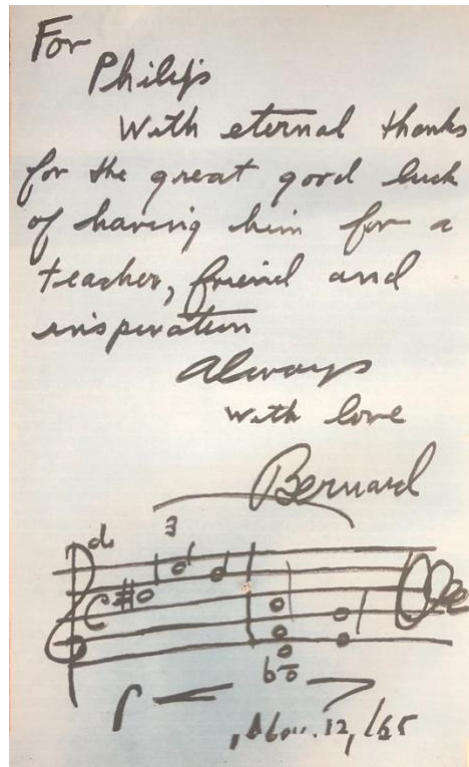 For
Philip
With eternal thanks
for the great good luck
of having him for a
teacher, friend and
inspiration
Always
with love
Bernard
3
Nov. 12, 165